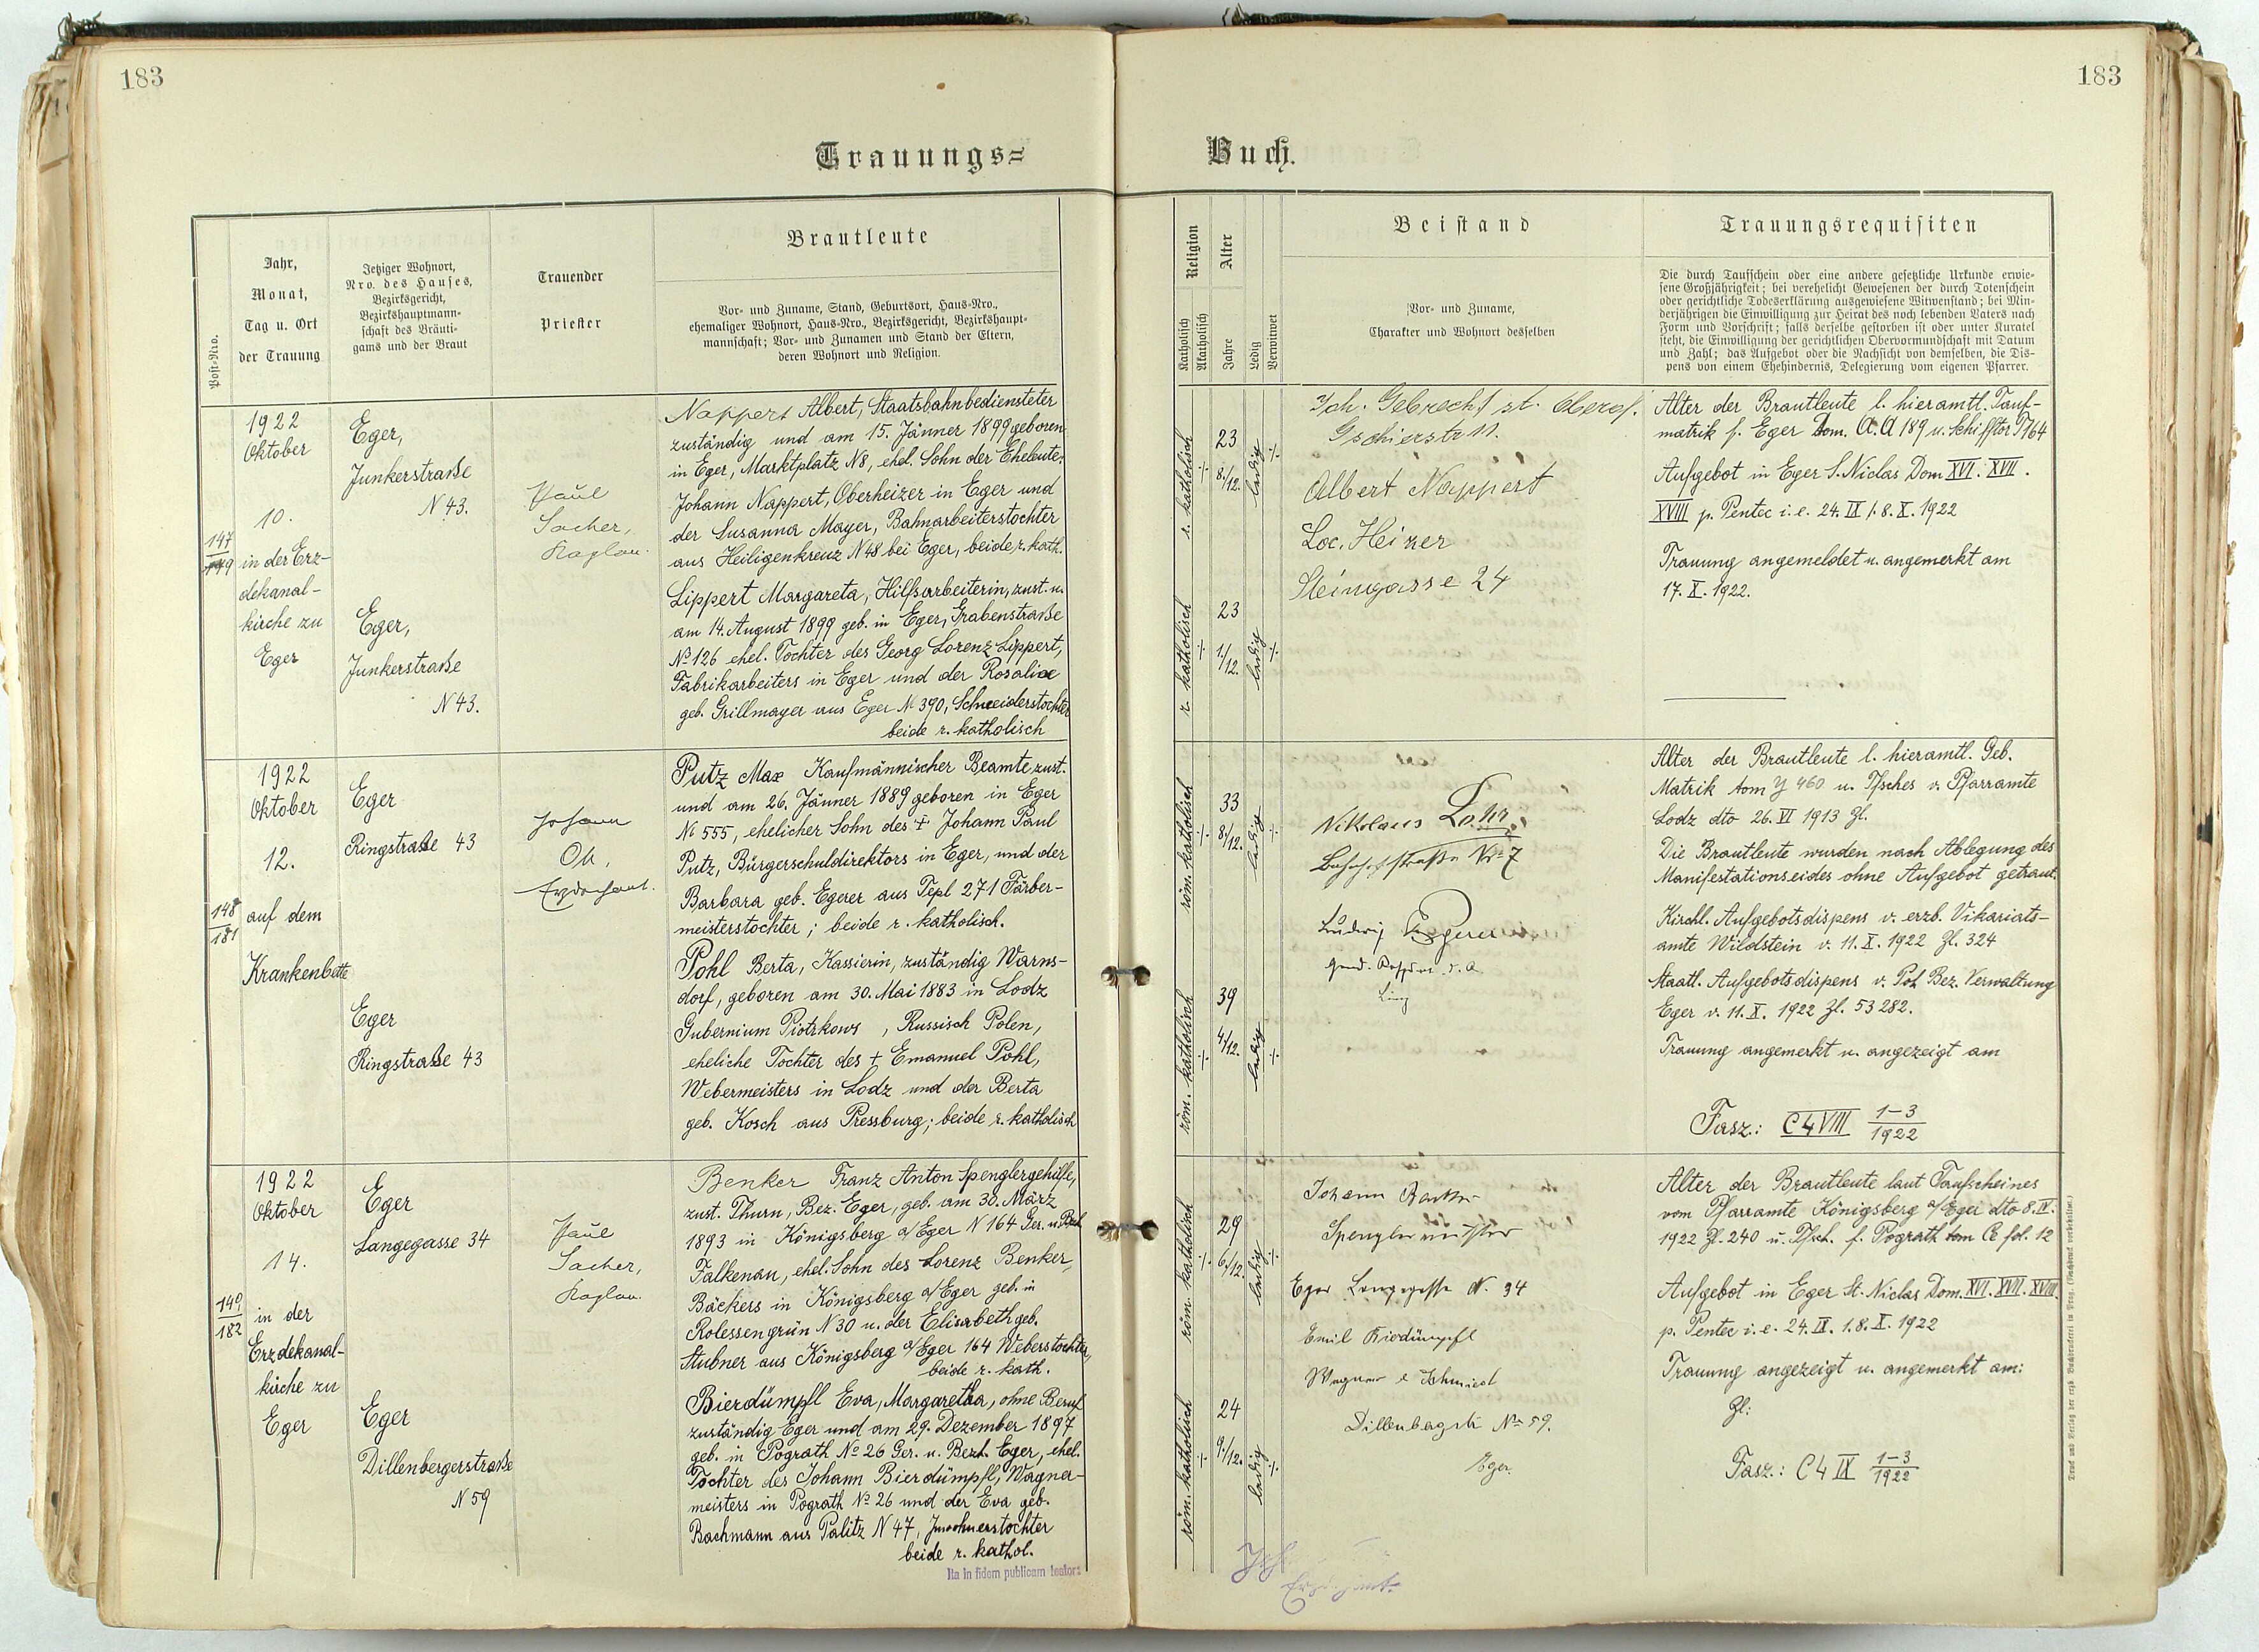 183
183
Trauungs=
Buch.
Post=Nro.
Jahr,
Monat,
Tag u. Ort
der Trauung
Jetziger Wohnort,
Nro. des Hauses,
Bezirksgericht,
Bezirkshauptmann-
schaft des Bräuti-
gams und der Braut
Trauender
Priester
Brautleute
Vor= und Zuname, Stand, Geburtsort, Haus=Nro.,
ehemaliger Wohnort, Haus=Nro., Bezirksgericht, Bezirkshaupt-
mannschaft; Vor= und Zunamen und Stand der Eltern,
deren Wohnort und Religion.
Religion
Katholisch
Akatholisch
Alter
Jahre
Ledig
Verwitwet
Beistand
Vor= und Zuname,
Charakter und Wohnort desselben
Trauungsrequisiten
Die durch Taufschein oder eine andere gesetzliche Urkunde erwie-
sene Großjährigkeit; bei verehelicht Gewesenen der durch Totenschein
oder gerichtliche Todeserklärung ausgewiesene Witwenstand; bei Min-
derjährigen die Einwilligung zur Heirat des noch lebenden Vaters nach
Form und Vorschrift; falls derselbe gestorben ist oder unter Kuratel
steht, die Einwilligung der gerichtlichen Obervormundschaft mit Datum
und Zahl; das Aufgebot oder die Nachsicht von demselben, die Dis-
pens von einem Ehehindernis, Delegierung vom eigenen Pfarrer.
147
1922
Oktober
10.
in der Erz-
dekanal-
kirche zu
Eger
Eger,
Junkerstraße
N 43.
Eger,
Junkerstraße
N 43.
Paul
Sacher,
Kaplan.
Nappert Albert, Staatsbahnbediensteter
zuständig und am 15. Jänner 1899 geboren
in Eger, Marktplatz N8, ehel. Sohn der Eheleute:
Johann Nappert, Oberheizer in Eger und
der Susanna Mayer, Bahnarbeiterstochter
aus Heiligenkreuz N 48 bei Eger, beide r. kath.
Lippert Margareta, Hilfsarbeiterin, zust. u.
am 14. August 1899 geb. in Eger, Grabenstraße
No 126 ehel. Tochter des Georg Lorenz Lippert,
Fabrikarbeiters in Eger und der Rosalia
geb. Grillmayer aus Eger No 390, Schneiderstochter
beide r. katholisch
r. katholisch
23
8/12.
ledig
r. katholisch
23
1/12.
ledig
Joh. Gebrecht
Albert Nappert
Loc. Heizer
Steingasse 24
Alter der Brautleute l. hieramtl. Tauf-
matrik f. Eger tom. A.A 189 u. Schifftor P 764
Aufgebot in Eger S. Niclas Dom XVI. XVII.
XVIII p. Pentec i. e. 24. IX 1. 8. X. 1922
Trauung angemeldet u. angemerkt am
17. X. 1922.
148
181
1922
Oktober
12.
auf dem
Krankenbette
Eger
Ringstraße 43
Eger
Ringstraße 43
Johann
Erzdechant.
Putz Max Kaufmännischer Beamte zust.
und am 26. Jänner 1889 geboren in Eger
No 555, ehelicher Sohn des † Johann Paul
Putz, Bürgerschuldirektors in Eger, und der
Barbara geb. Egerer aus Tepl 271 Färber-
meisterstochter; beide r. katholisch.
Pohl Berta, Kassierin, zuständig Warns-
dorf, geboren am 30. Mai 1883 in Lodz
Gubernium Piotrkows, Russisch Polen,
eheliche Tochter des † Emanuel Pohl,
Webermeisters in Lodz und der Berta
geb. Kosch aus Pressburg; beide r. katholisch
röm. katholisch
33
8/12.
ledig
röm. katholisch
39
4/12.
ledig
Nikolaus Lohr
Bahnhofstraße No 7
Ludwig Egerer
Alter der Brautleute l. hieramtl. Geb.
Matrik tom Y 460 u. Tfsches v. Pfarramte
Lodz dto 26. VI 1913 Zl.
Die Brautleute wurden nach Ablegung des
Manifestationseides ohne Aufgebot getraut.
Kirchl. Aufgebotsdispens v. erzb. Vikariats-
amte Wildstein v. 11. X. 1922 Zl. 324
Staatl. Aufgebotsdispens v. Pol. Bez. Verwaltung
Eger v. 11. X. 1922 Zl. 53282.
Trauung angemerkt u. angezeigt am
Fasz.: C4 VIII 1-3/1922
149
182
1922
Oktober
14.
in der
Erzdekanal-
kirche zu
Eger
Eger
Langegasse 34
Eger
Dillenbergerstraße
N 59
Paul
Sacher,
Kaplan.
Benker Franz Anton Spenglergehilfe,
zust. Thurn, Bez. Eger, geb. am 30. März
1893 in Königsberg a/Eger N 164 Ger. u. Bezh.
Falkenau, ehel. Sohn des Lorenz Benker,
Bäckers in Königsberg a/Eger geb. in
Rolessengrün N 30 u. der Elisabeth geb.
Stubner aus Königsberg a/Eger 164 Weberstochter,
beide r. kath.
Bierdümpfl Eva, Margaretha, ohne Beruf
zuständig Eger und am 29. Dezember 1897
geb. in Pograth No 26 Ger. u. Bezh. Eger, ehel.
Tochter des Johann Bierdümpfl, Wagner-
meisters in Pograth No 26 und der Eva geb.
Bachmann aus Palitz N 47, Inwohnerstochter
beide r. kathol.
Ita in fidem publicam testor:
röm. katholisch
29
6/12.
ledig
röm. katholisch
24
9/12.
ledig
Johann
Spenglermeister
Eger Langegasse N. 34
Emil Bierdümpfl
Wagner & Schmied
Dillenbergstr No 59.
Eger.
Erzdechant.
Alter der Brautleute laut Taufscheines
vom Pfarramte Königsberg a/Eger dto 8. IV.
1922 Zl. 240 u. Tfsch. f. Pograth tom C fol. 12
Aufgebot in Eger St. Niclas Dom. XVI. XVII. XVIII.
p. Pentec i. e. 24. IX. 1. 8. X. 1922
Trauung angezeigt u. angemerkt am:
Zl:
Fasz.: C4 IX 1-3/1922
Druck und Verlag der erzb. Buchdruckerei in Prag. (Nachdruck vorbehalten.)